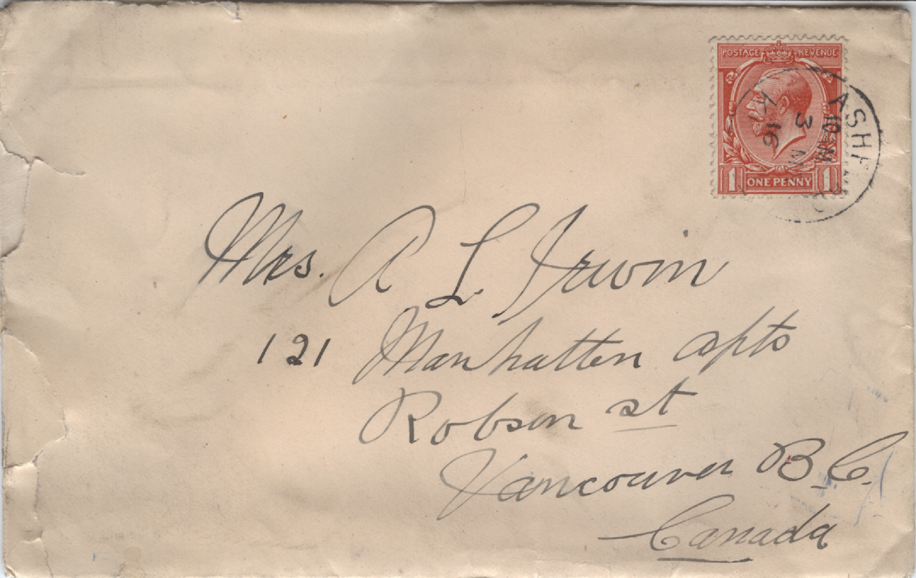 POSTAGE REVENUE
ASHF
3 M
16
1 ONE PENNY 1
Mrs. A L. Irwin
121 Manhatten apts
Robson st
Vancouver B.C.
Canada